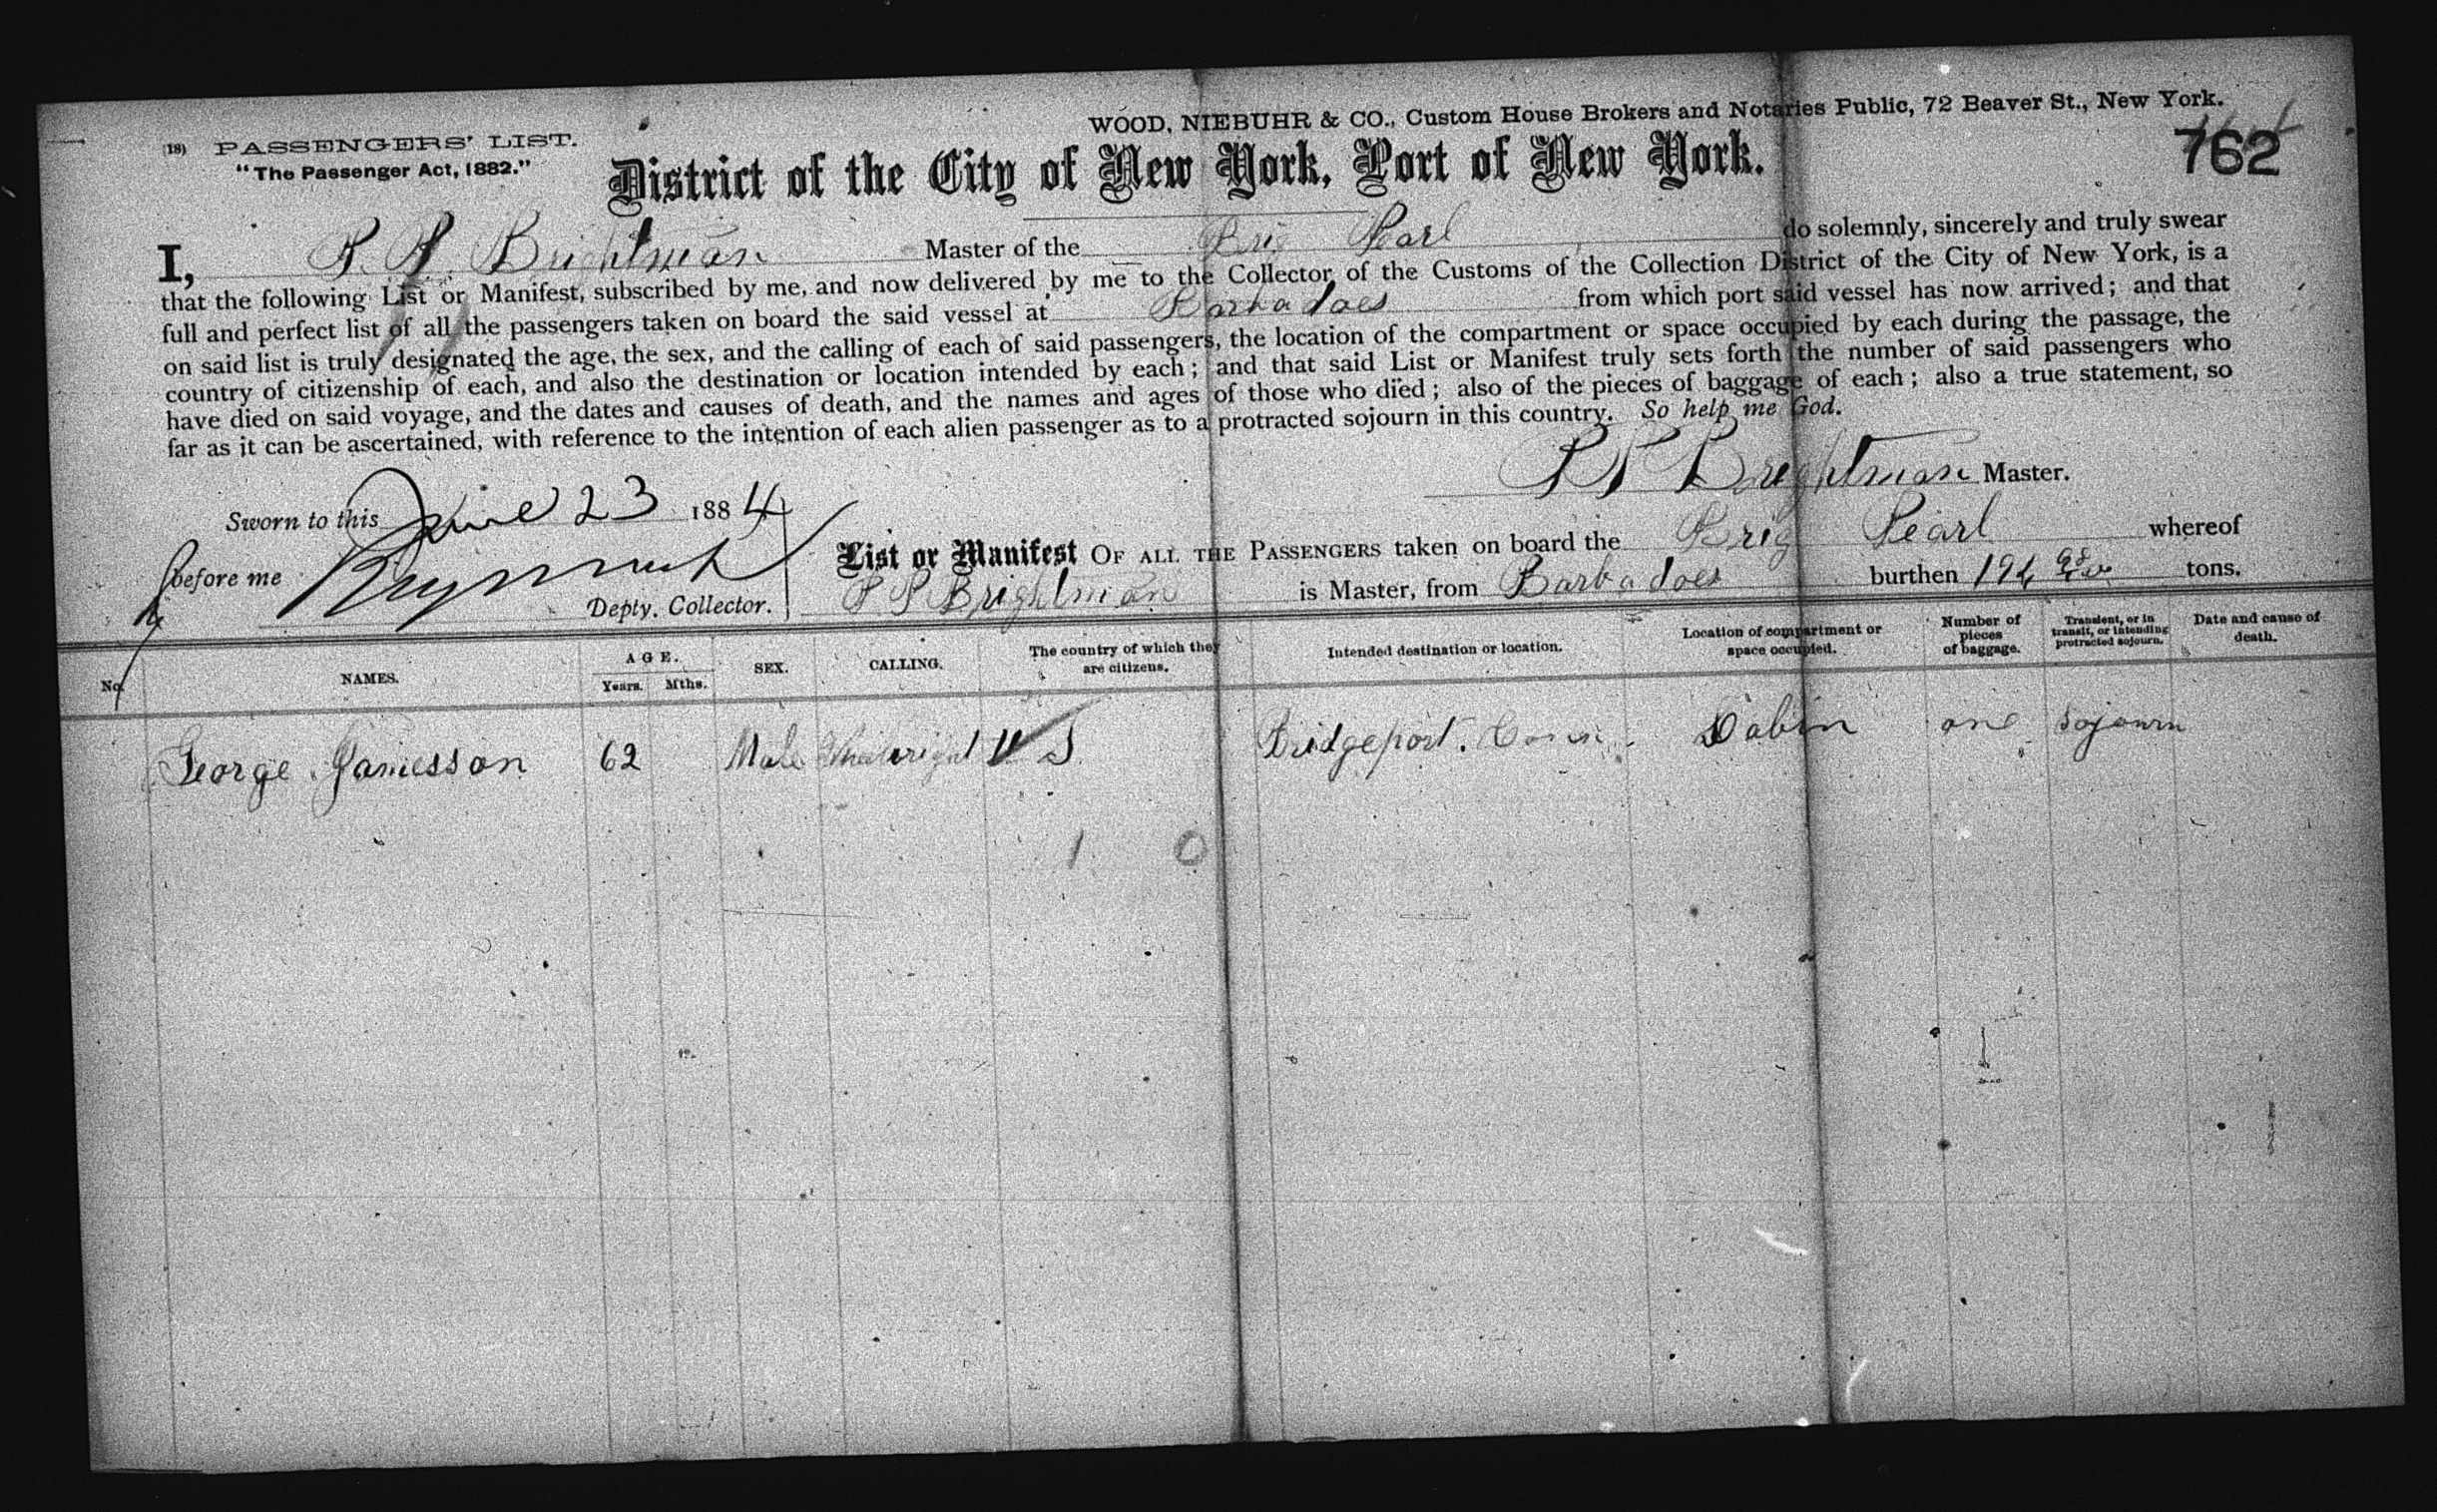 WOOD, NIEBUHR & CO., Custom House Brokers and Notaries Public, 72 Beaver St., New York.
(18) PASSENGERS' LIST.
"The Passenger Act, 1882."
District of the City of New York, Port of New York.
762
I, P. P. Brightman Master of the Brig Pearl do solemnly, sincerely and truly swear
that the following List or Manifest, subscribed by me, and now delivered by me to the Collector of the Customs of the Collection District of the City of New York, is a
full and perfect list of all the passengers taken on board the said vessel at Barbadoes from which port said vessel has now arrived; and that
on said list is truly designated the age, the sex, and the calling of each of said passengers, the location of the compartment or space occupied by each during the passage, the
country of citizenship of each, and also the destination or location intended by each; and that said List or Manifest truly sets forth the number of said passengers who
have died on said voyage, and the dates and causes of death, and the names and ages of those who died; also of the pieces of baggage of each; also a true statement, so
far as it can be ascertained, with reference to the intention of each alien passenger as to a protracted sojourn in this country. So help me God.
P P Brightman Master.
Sworn to this June 23 1884
before me
Depty. Collector.
List or Manifest OF ALL THE PASSENGERS taken on board the Brig Pearl whereof
P P Brightman is Master, from Barbadoes burthen tons.
No. NAMES. AGE. Years. Mths. SEX. CALLING. The country of which they are citizens. Intended destination or location. Location of compartment or space occupied. Number of pieces of baggage. Transient, or in transit, or intending protracted sojourn. Date and cause of death.
George Jamesson 62 Male Wheelwright U S Bridgeport. Conn. Cabin one Sojourn
1 0